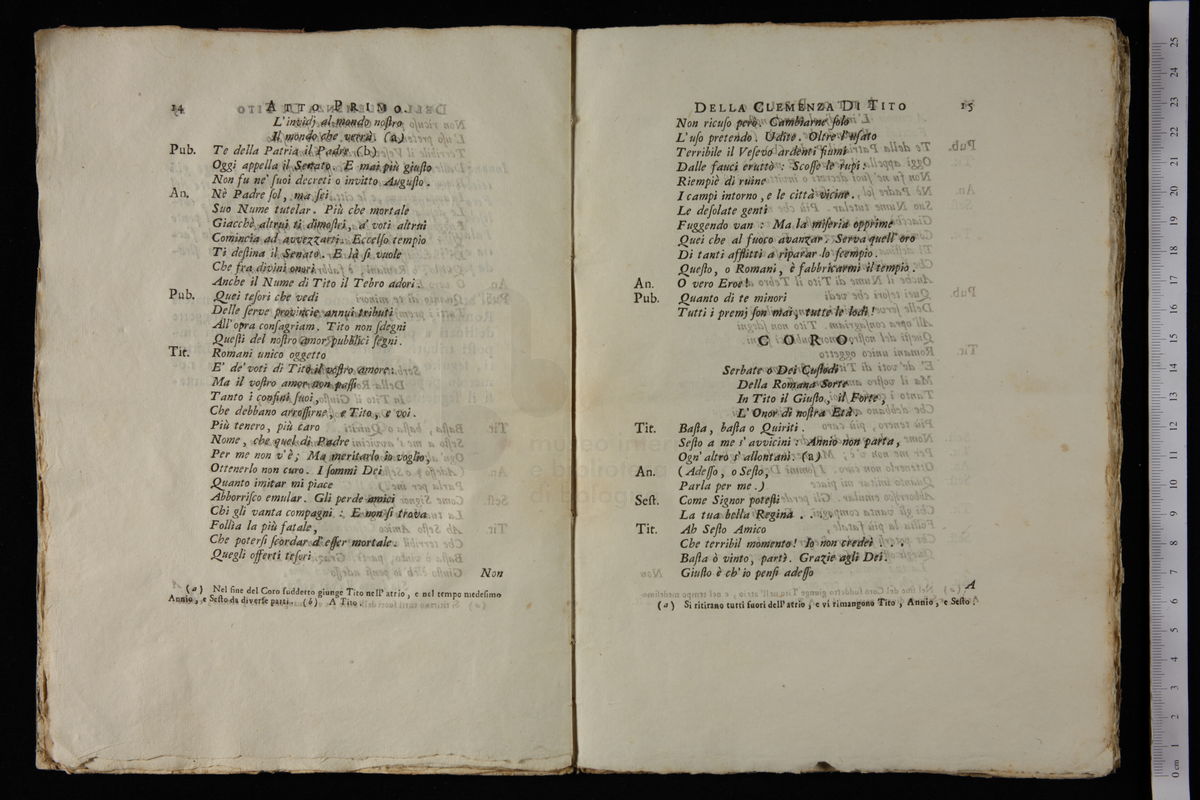 14 ATTO PRIMO.
L'invidj al mondo noſtro
Il mondo che verrà. (a)
Pub. Te della Patria il Padre (b)
Oggi appella il Senato. E mai più giuſto
Non fu ne' ſuoi decreti o invitto Auguſto.
An. Nè Padre ſol, ma ſei
Suo Nume tutelar. Più che mortale
Giacchè altrui ti dimoſtri, a' voti altrui
Comincia ad avvezzarti. Eccelſo tempio
Ti deſtina il Senato. E là ſi vuole
Che fra divini onori
Anche il Nume di Tito il Tebro adori.
Pub. Quei teſori che vedi
Delle ſerve provincie annui tributi
All'opra conſagriam. Tito non ſdegni
Queſti del noſtro amor pubblici ſegni.
Tit. Romani unico oggetto
E' de' voti di Tito il voſtro amore:
Ma il voſtro amor non paſſi
Tanto i confini ſuoi,
Che debbano arroſſirne, e Tito, e voi.
Più tenero, più caro
Nome, che quel di Padre
Per me non v'è; Ma meritarlo io voglio,
Ottenerlo non curo. I ſommi Dei
Quanto imitar mi piace
Abborriſco emular. Gli perde amici
Chi gli vanta compagni: E non ſi trova
Follìa la più fatale,
Che poterſi ſcordar d'eſſer mortale.
Quegli offerti teſori
Non
(a) Nel fine del Coro ſuddetto giunge Tito nell'atrio, e nel tempo medeſimo
Annio, e Seſto da diverſe parti. (b) A Tito.
DELLA CLEMENZA DI TITO 15
Non ricuſo però. Cambiarne ſolo
L'uſo pretendo. Udite. Oltre l'uſato
Terribile il Veſevo ardenti fiumi
Dalle fauci eruttò: Scoſſe le rupi:
Riempiè di ruine
I campi intorno, e le città vicine.
Le deſolate genti
Fuggendo van: Ma la miſeria opprime
Quei che al fuoco avanzar. Serva quell'oro
Di tanti afflitti a riparar lo ſcempio.
Queſto, o Romani, è fabbricarmi il tempio.
An. O vero Eroe!
Pub. Quanto di te minori
Tutti i premj ſon mai, tutte le lodi!
CORO.
Serbate o Dei Cuſtodi
Della Romana Sorte
In Tito il Giuſto, il Forte,
L'Onor di noſtra Età.
Tit. Baſta, baſta o Quiriti.
Seſto a me s'avvicini: Annio non parta,
Ogn'altro s'allontani. (a)
An. (Adeſſo, o Seſto,
Parla per me.)
Seſt. Come Signor poteſti
La tua bella Regina . .
Tit. Ah Seſto Amico
Che terribil momento! Io non credei . . .
Baſta ò vinto, partì. Grazie agli Dei.
Giuſto è ch'io penſi adeſſo
A
(a) Si ritirano tutti fuori dell'atrio, e vi rimangono Tito, Annio, e Seſto.